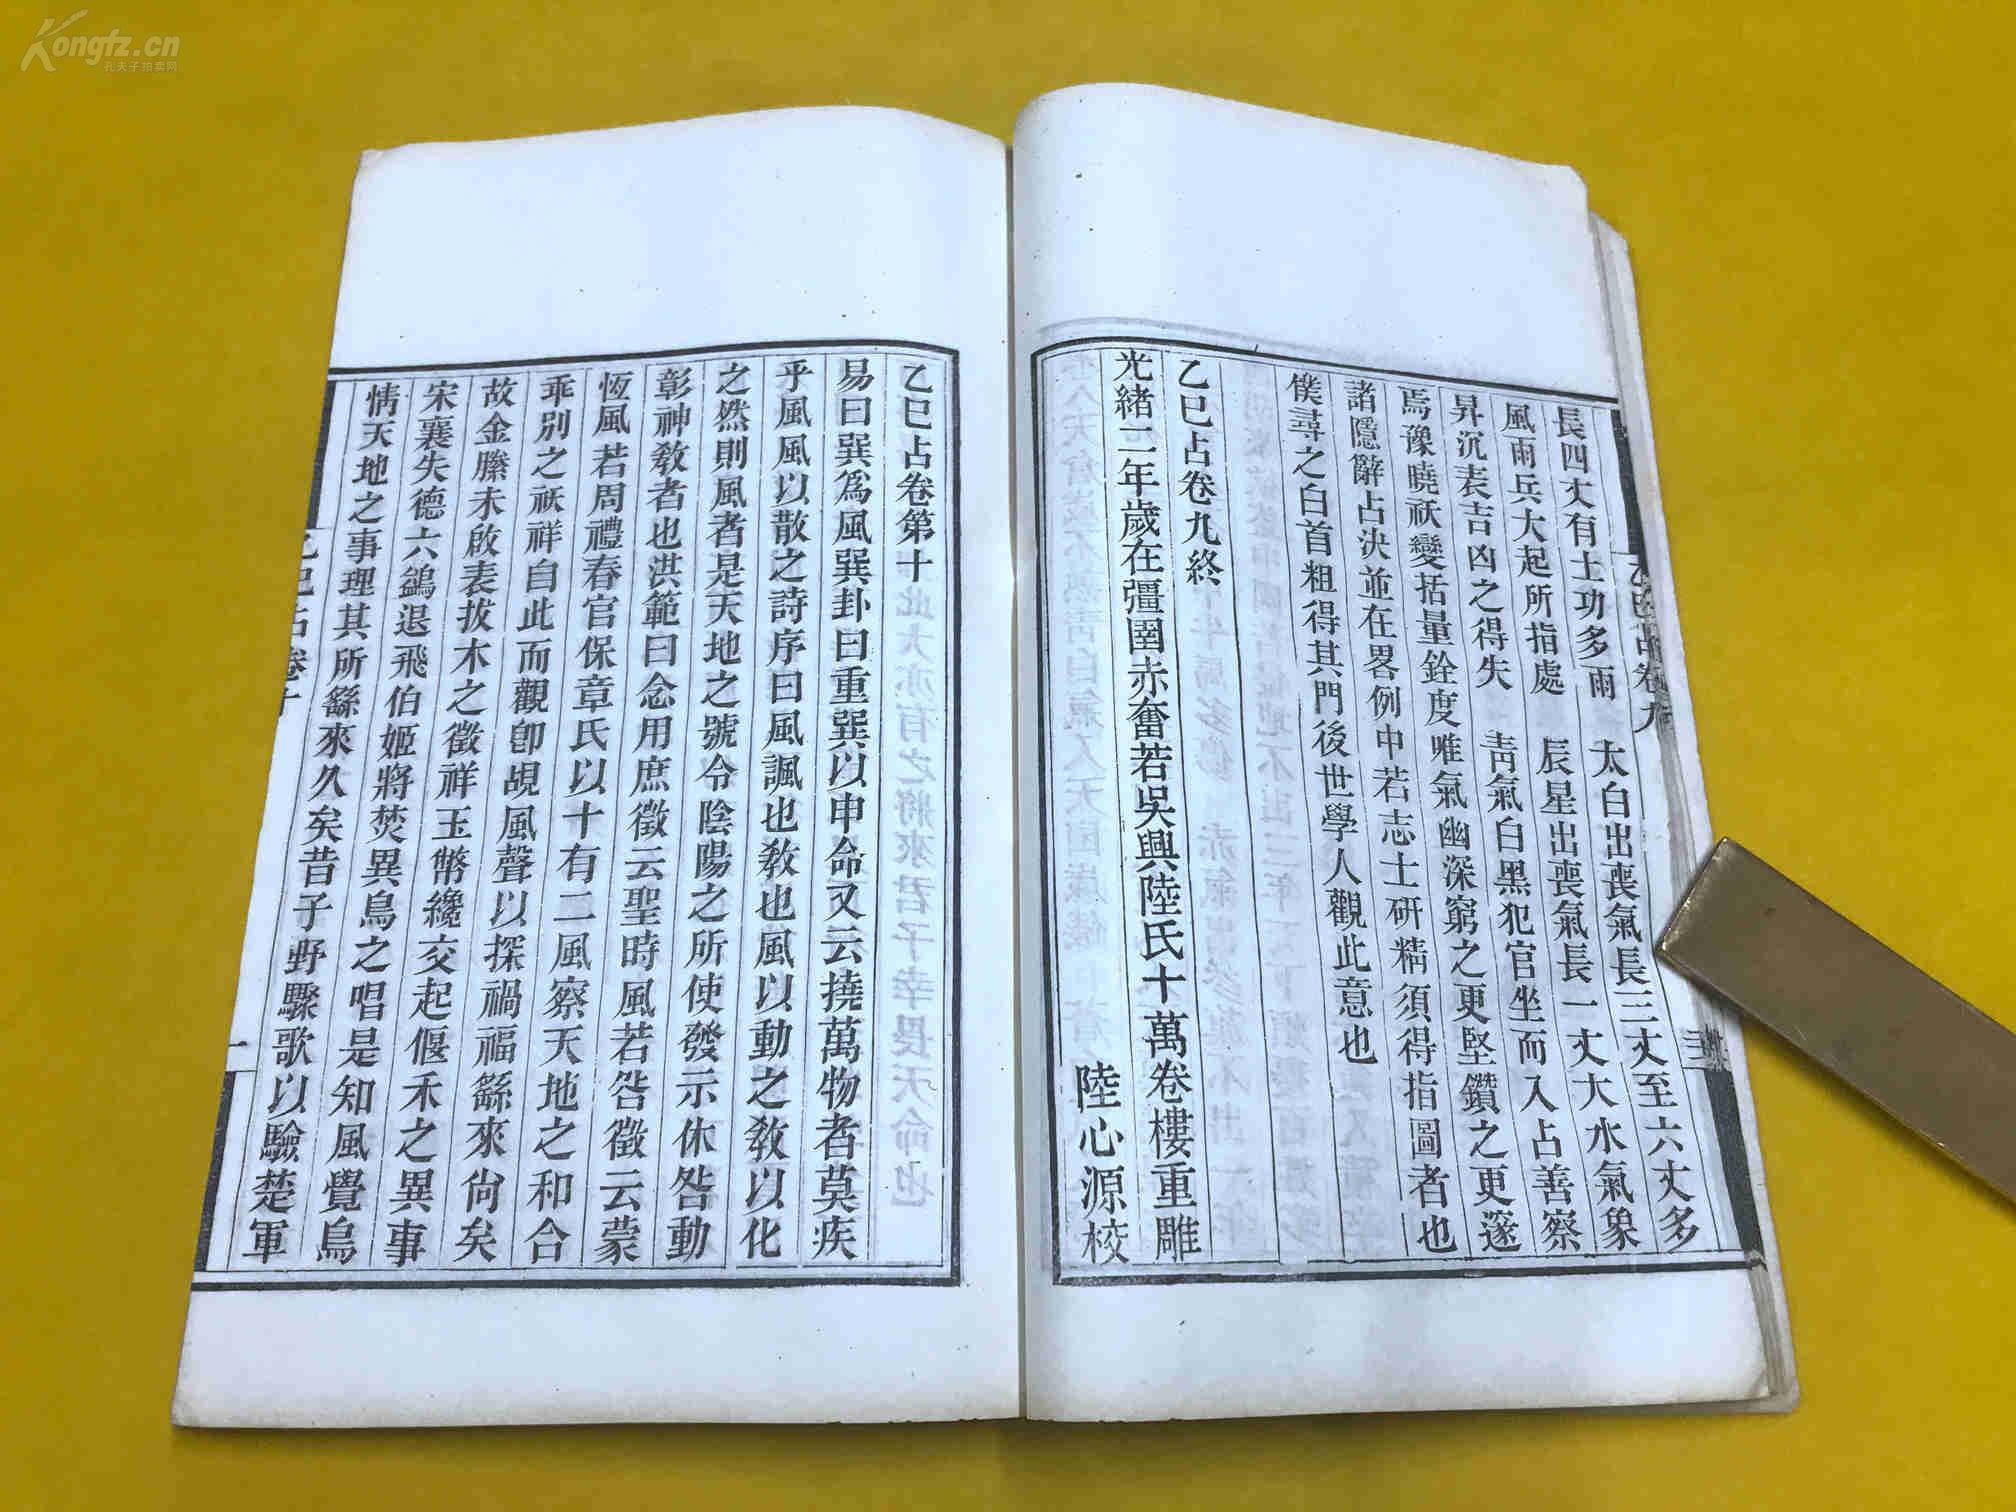 Kongfz.cn
孔夫子拍卖网
長四丈有土功多雨　太白出喪氣長三丈至六丈多
風雨兵大起所指處　辰星出喪氣長一丈大水氣象
昇沉表吉凶之得失　靑氣白黑犯官坐而入占善察
焉豫曉祅變括量銓度唯氣幽深窮之更堅鑽之更邃
諸隱辭占決並在畧例中若志士硏精須得指圖者也
僕尋之白首粗得其門後世學人觀此意也
乙巳占卷九終
光緒二年歲在彊圉赤奮若吳興陸氏十萬卷樓重雕
陸心源校
乙巳占卷第十
易曰巽爲風巽卦曰重巽以申命又云撓萬物者莫疾
乎風風以散之詩序曰風諷也敎也風以動之敎以化
之然則風者是天地之號令陰陽之所使發示休咎動
彰神敎者也洪範曰念用庶徵云聖時風若咎徵云蒙
恆風若周禮春官保章氏以十有二風察天地之和合
乖別之祅祥自此而觀卽覘風聲以探禍福繇來尙矣
故金縢未啟表拔木之徵祥玉幣纔交起偃禾之異事
宋襄失德六鷁退飛伯姬將焚異鳥之唱是知風覺鳥
情天地之事理其所繇來久矣昔子野驟歌以驗楚軍
乙巳占卷十
一